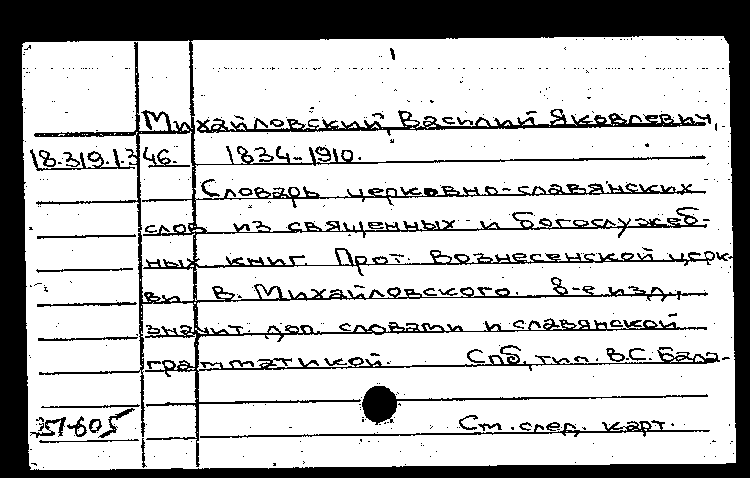 Михайловский, Василий Яковлевич,
18.319.1.346. 1834-1910.
Словарь церковно-славянских
слов из священных и богослужеб-
ных книг. Прот. Вознесенской церк-
ви В. Михайловского. 8-е изд.,
значит. доп. словами и славянской
грамматикой. Спб, тип. В.С. Бала-
51-605
Ст. след. карт.